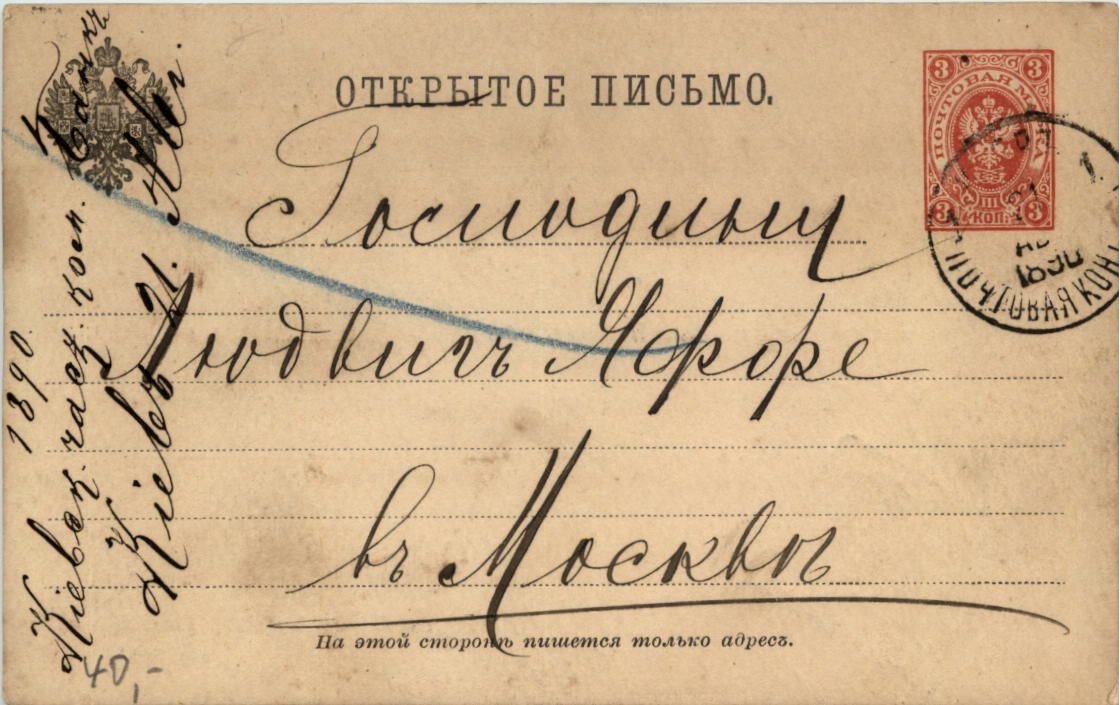 ОТКРЫТОЕ ПИСЬМО.
3 3
ПОЧТОВАЯ МАРКА
3 КОП. 3
1
21
1890
ПОЧТОВАЯ КОН
Господину
Людвигъ Яфоре
въ Москвѣ
На этой сторонѣ пишется только адресъ.
1890.
Кіевъ
40,-